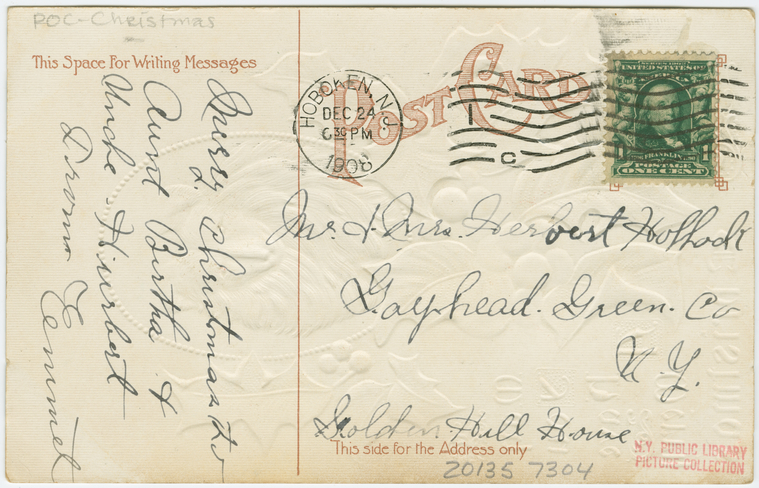 POC-Christmas
This Space For Writing Messages
Merry Christmas to
Aunt Bertha &
Uncle Hurbert
From Emmet
POST CARD
HOBOKEN, N.J.
DEC 24
6 30 PM
1908
1
C
SERIES 1902
UNITED STATES OF
FRANKLIN
1 1
POSTAGE
ONE CENT
Mr. & Mrs. Herbert Hollock
Gayhead. Green. Co
N.Y.
Golden Hill House
This side for the Address only
20135 7304
N.Y. PUBLIC LIBRARY
PICTURE COLLECTION